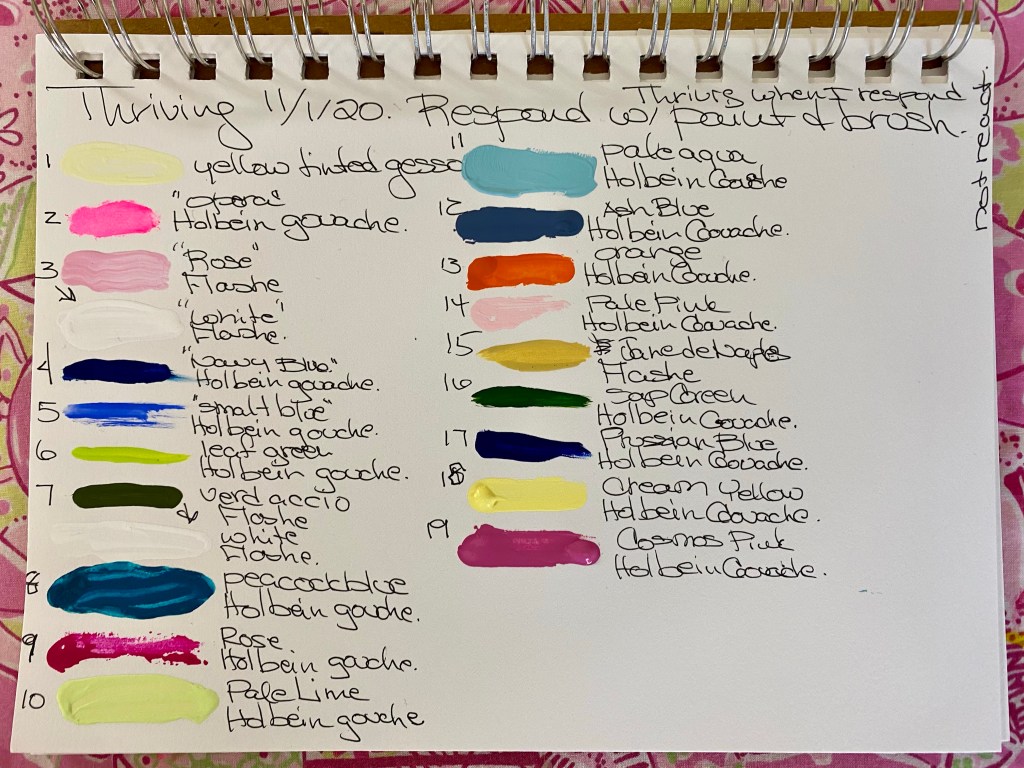 Thriving 11/1/20. Respond w/ paint & brush.
Thrives when I respond
not react.
1 yellow tinted gesso
2 "opera"
Holbein gouache.
3 "Rose"
Flashe
"White"
Flashe.
4 "Navy Blue"
Holbein gouache.
5 "smalt blue"
Holbein gouche.
6 leaf green
Holbein gouache.
7 verdaccio
Flashe
white
Flashe.
8 peacock blue
Holbein gouche.
9 Rose.
Holbein gouche.
10 Pale Lime
Holbein gouche
11 pale aqua
Holbein Gouache
12 Ash Blue
Holbein Gouache.
13 orange
Holbein Gouache.
14 Pale Pink
Holbein Gouache.
15 Jane de Naples
Flashe
16 Sap Green
Holbein Gouache.
17 Prussian Blue
Holbein Gouache.
18 Cream Yellow
Holbein Gouache.
19 Cosmos Pink
Holbein Gouache.